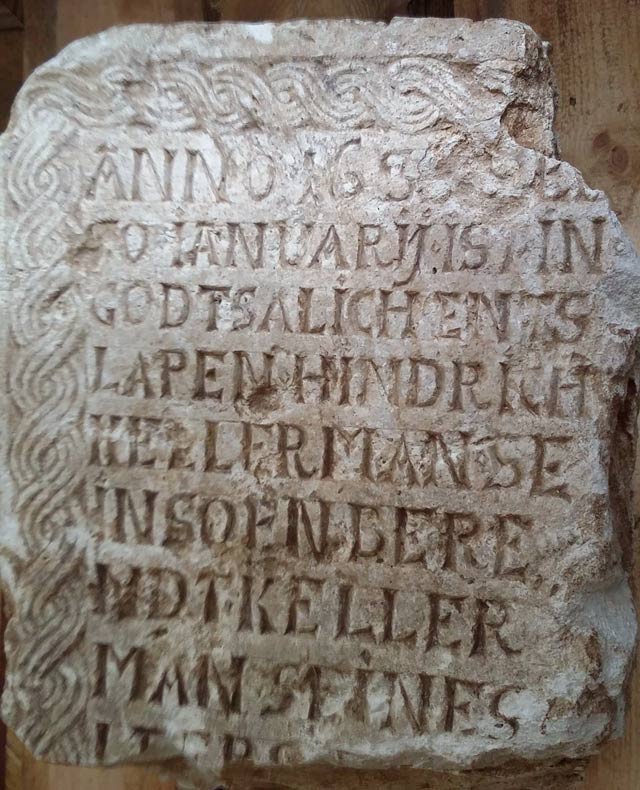 ANNO 163
20 IANUARIJ · IST IN
GODT SALICH ENTS
LAPEN HINDRICH
KELLERMAN · SE
IN SOEN BERE
NDT · KELLER
MAN SEINES